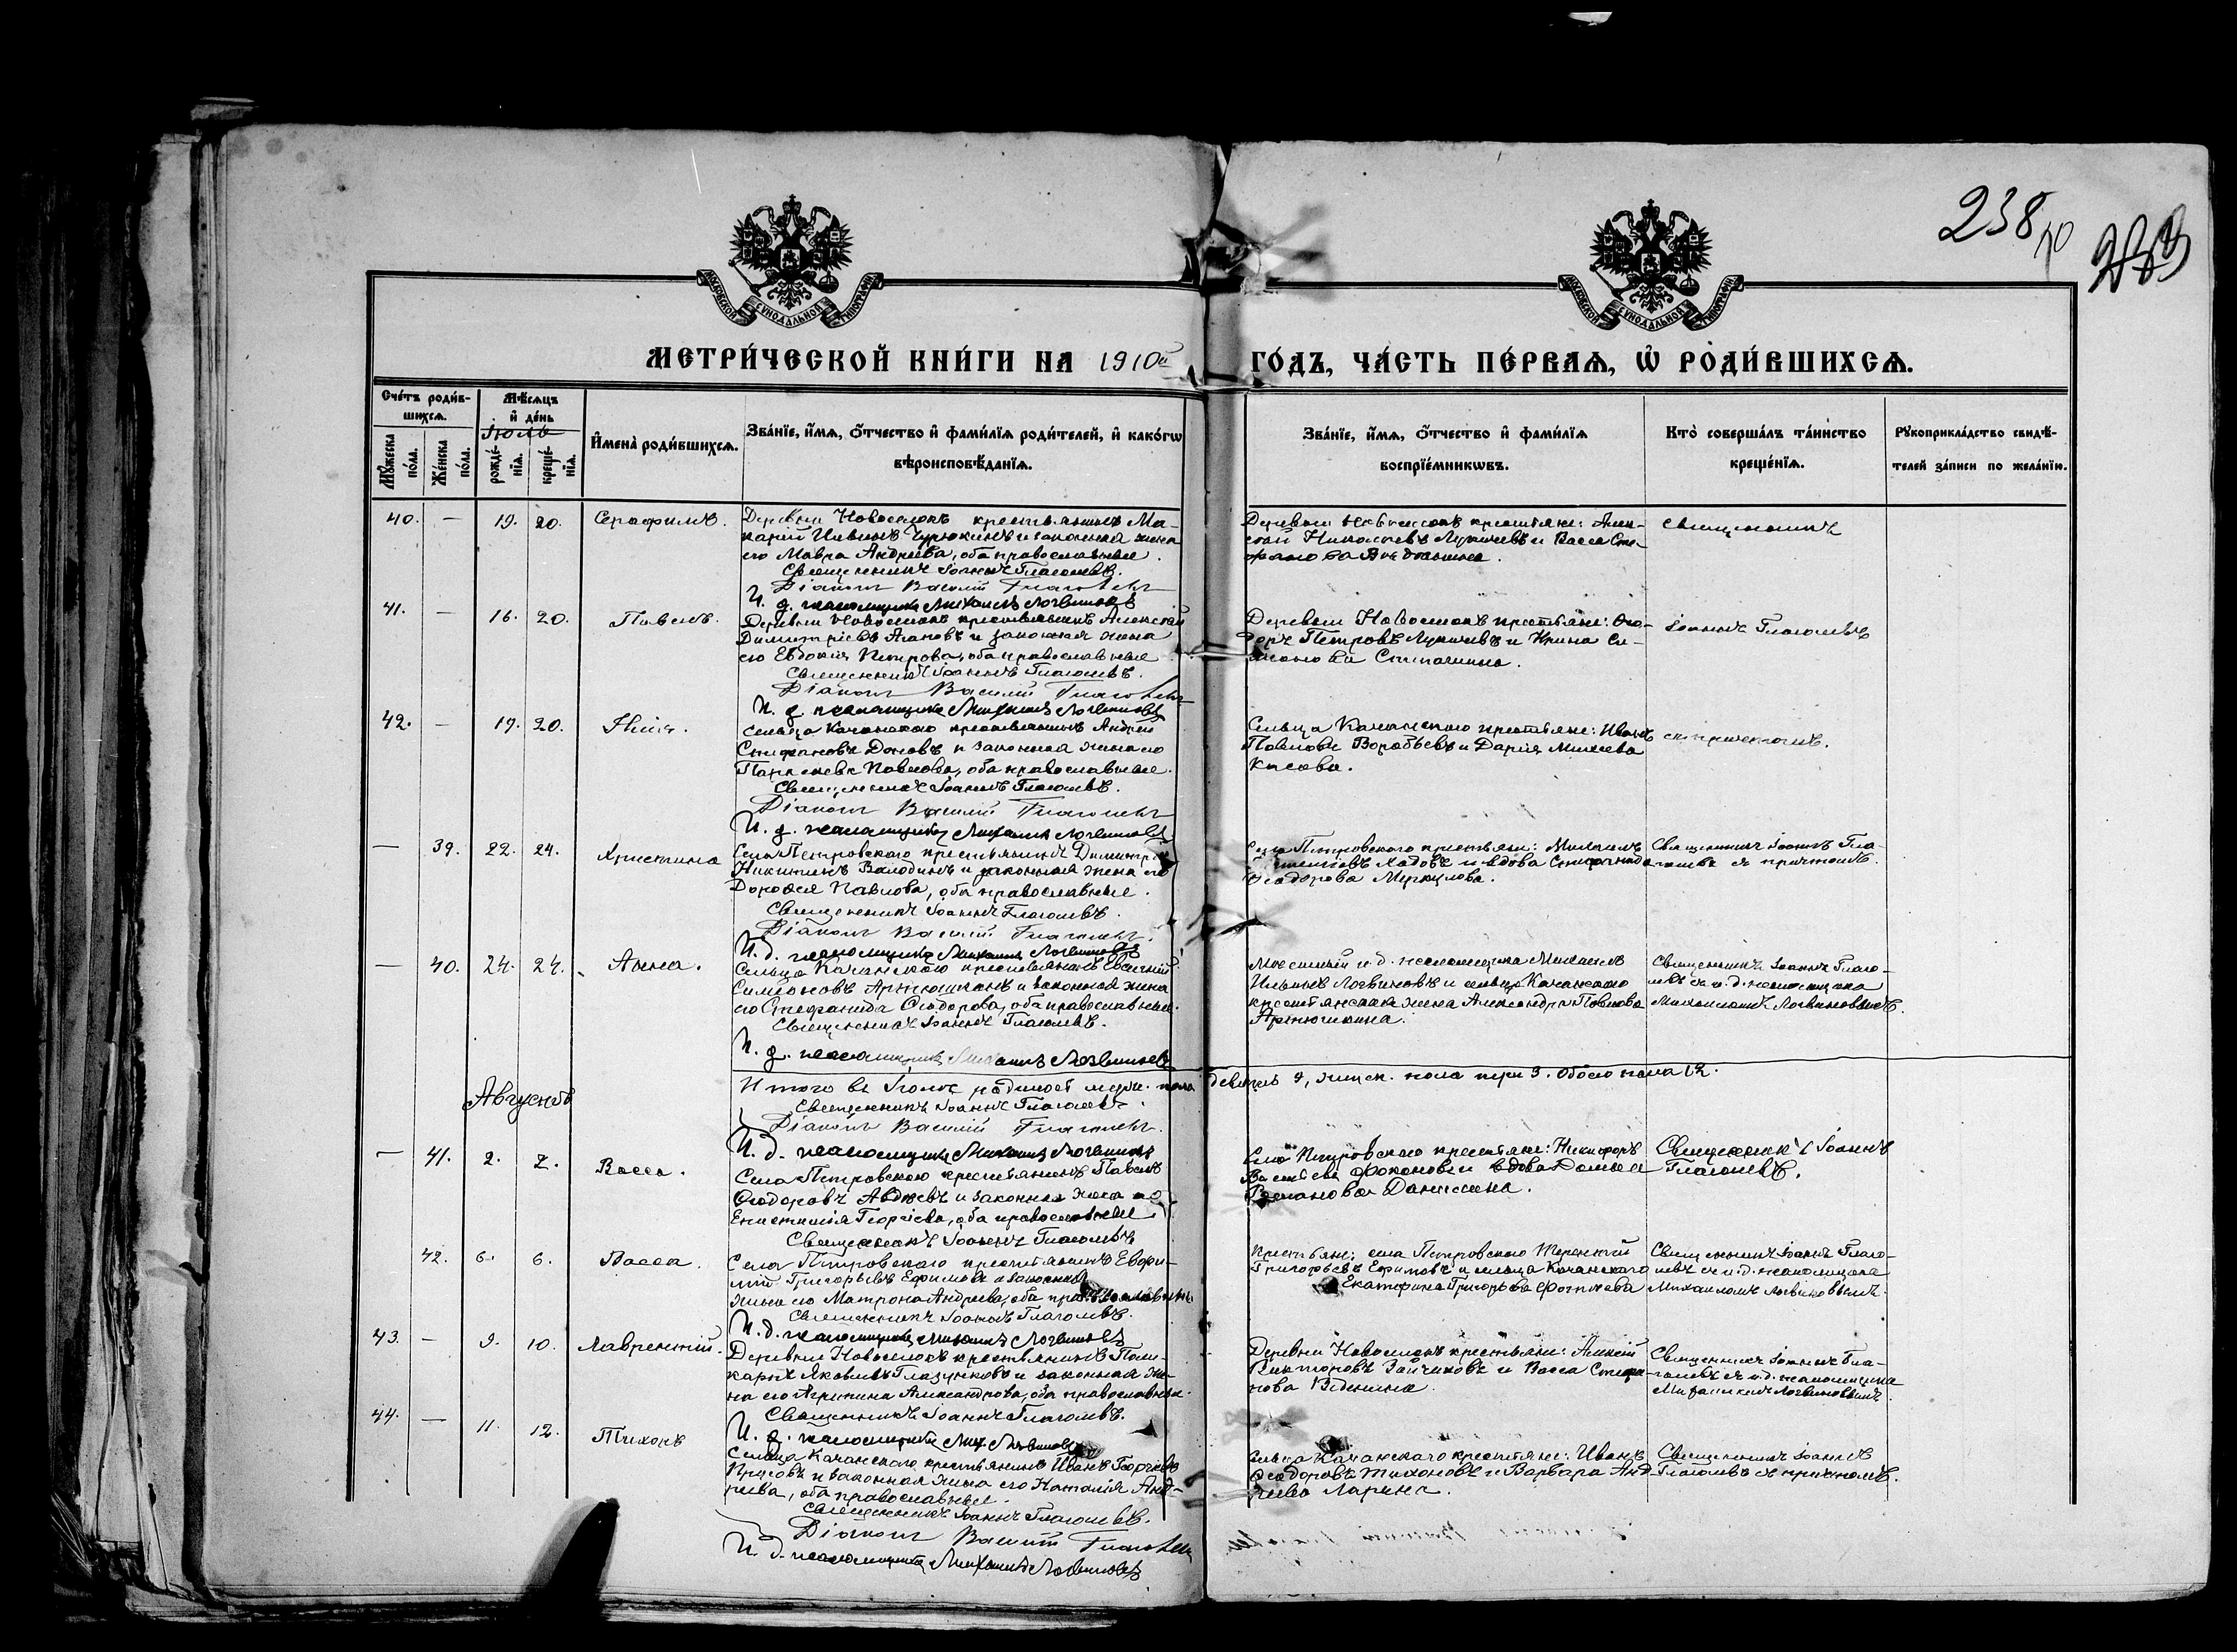 238
МОСКОВСКОЙ СѴНОДАЛЬНОЙ ТИПОГРАФІИ
МОСКОВСКОЙ СѴНОДАЛЬНОЙ ТИПОГРАФІИ
МЕТРИ́ЧЕСКОЙ КНИ́ГИ НА 1910й ГО́ДЪ, ЧА́СТЬ ПЕ́РВАѦ, Ѡ҆ РОДИ́ВШИХСѦ.
Сче́тъ роди́в-
шихсѧ.
Мꙋ́жеска по́ла.
Же́нска по́ла.
Мѣ́сѧцъ
и҆ де́нь
Іюль
рожде́-
нїѧ.
креще́-
нїѧ.
И҆мена̀ роди́вшихсѧ.
Зва́нїе, и҆́мѧ, ѻ҆́тчество и҆ фами́лїѧ роди́телей, и҆ како́гѡ
вѣроисповѣ́данїѧ.
Зва́нїе, и҆́мѧ, ѻ҆́тчество и҆ фами́лїѧ
воспрїе́мникѡвъ.
Кто̀ соверша́лъ та́инство
креще́нїѧ.
Рꙋкоприкла́дство свидѣ́-
телей за́писи по жела́нїю.
40. — 19. 20. Серафимъ.
Деревни Новоселокъ крестьянинъ Ма-
карій и законная жена
его Мавра Андреева, оба православные.
Священникъ Іоаннъ Глаголевъ.
Діаконъ Василій
И. д. псаломщика Михаилъ Логвиновъ
Деревни Новоселокъ крестьяне: Алек-
сѣй Николаевъ Лукичевъ и Васса Сте-
фанова
Священникъ
41. — 16. 20. Павелъ.
Деревни Новоселокъ крестьянинъ Алексѣй
Димитріевъ Агаповъ и законная жена
его Евдокія Петрова, оба православные
Священникъ Іоаннъ Глаголевъ.
Діаконъ Василій
И. д. псаломщика Михаилъ Логвиновъ
Деревни Новоселокъ крестьяне: Ѳео-
доръ Петровъ Лукичевъ и Ирина Си-
Іоаннъ Глаголевъ
42. — 19. 20. Илія.
Сельца Качанского крестьянинъ Андрей
Стефановъ и законная жена его
Павлова, оба православные.
Священникъ Іоаннъ Глаголевъ.
Діаконъ Василій
И. д. псаломщика Михаилъ Логвиновъ
Сельца Качанского крестьяне: Иванъ
Павловъ Воробьевъ и Дарія Михеева
съ причтомъ.
— 39. 22. 24. Христина
Села Петровского крестьянинъ Димитрій
Никитинъ Володинъ и законная жена его
Дорофея Павлова, оба православные.
Священникъ Іоаннъ Глаголевъ.
Діаконъ Василій
И. д. псаломщика Михаилъ Логвиновъ
Села Петровского крестьяне: Михаилъ
и вдова Стефанида
Ѳеодорова Меркулова.
Священникъ Іоаннъ Гла-
голевъ съ причтомъ.
— 40. 24. 24. Анна.
Сельца Качанского крестьянинъ Евгеній
Симеоновъ Артюшкинъ и законная жена
его Стефанида Ѳеодорова, оба православные.
Священникъ Іоаннъ Глаголевъ.
И. д. псаломщика Михаилъ Логвиновъ
Мѣстный и. д. псаломщика Михаилъ
Ильинъ Логвиновъ и сельца Качанского
крестьянская жена Александра Павлова
Артюшкина.
Священникъ Іоаннъ Глаго-
левъ съ и. д. псаломщика
Михаиломъ Логвиновымъ.
Итого въ Іюлѣ родилось муж. пола девять 9, женск. пола три 3. Обоего пола 12.
Священникъ Іоаннъ Глаголевъ.
Діаконъ Василій
И. д. псаломщика Михаилъ Логвиновъ
Августъ
— 41. 2. 2. Васса.
Села Петровского крестьянинъ Павелъ
Ѳеодоровъ Авдѣевъ и законная жена его
Георгіева, оба православные
Священникъ Іоаннъ Глаголевъ
Села Петровского крестьяне: Никифоръ
и вдова
Романова Данилина.
Священникъ Іоаннъ
Глаголевъ.
42. 6. 6. Васса.
Села Петровского крестьянинъ Евфи-
мій Григорьевъ Ефимовъ и законная
жена его Матрона Андреева, оба православные
Священникъ Іоаннъ Глаголевъ.
И. д. псаломщика Михаилъ Логвиновъ
Крестьяне: села Петровского Терентій
Григорьевъ Ефимовъ и сельца Качанского
Екатерина Григорьева
Священникъ Іоаннъ Глаго-
левъ съ и. д. псаломщика
Михаиломъ Логвиновымъ.
43. — 9. 10. Лаврентій.
Деревни Новоселокъ крестьянинъ Поли-
карпъ Яковлевъ Глазунковъ и законная же-
на его Агрипина Александрова, оба православные.
Священникъ Іоаннъ Глаголевъ.
И. д. псаломщика Мих. Логвиновъ
Деревни Новоселокъ крестьяне: Алексѣй
Викторовъ Зайчиковъ и Васса Стефа-
нова
Священникъ Іоаннъ Гла-
голевъ съ и. д. псаломщика
Михаиломъ Логвиновымъ.
44. — 11. 12. Тихонъ
Сельца Качанского крестьянинъ Иванъ Георгіевъ
и законная жена его Наталія Анд-
реева, оба православные.
Священникъ Іоаннъ Глаголевъ.
Діаконъ Василій
И. д. псаломщика Михаилъ Логвиновъ
Сельца Качанского крестьяне: Иванъ
Ѳеодоровъ Тихоновъ и Варвара Анд-
реева Ларина.
Священникъ Іоаннъ
Глаголевъ съ причтомъ.